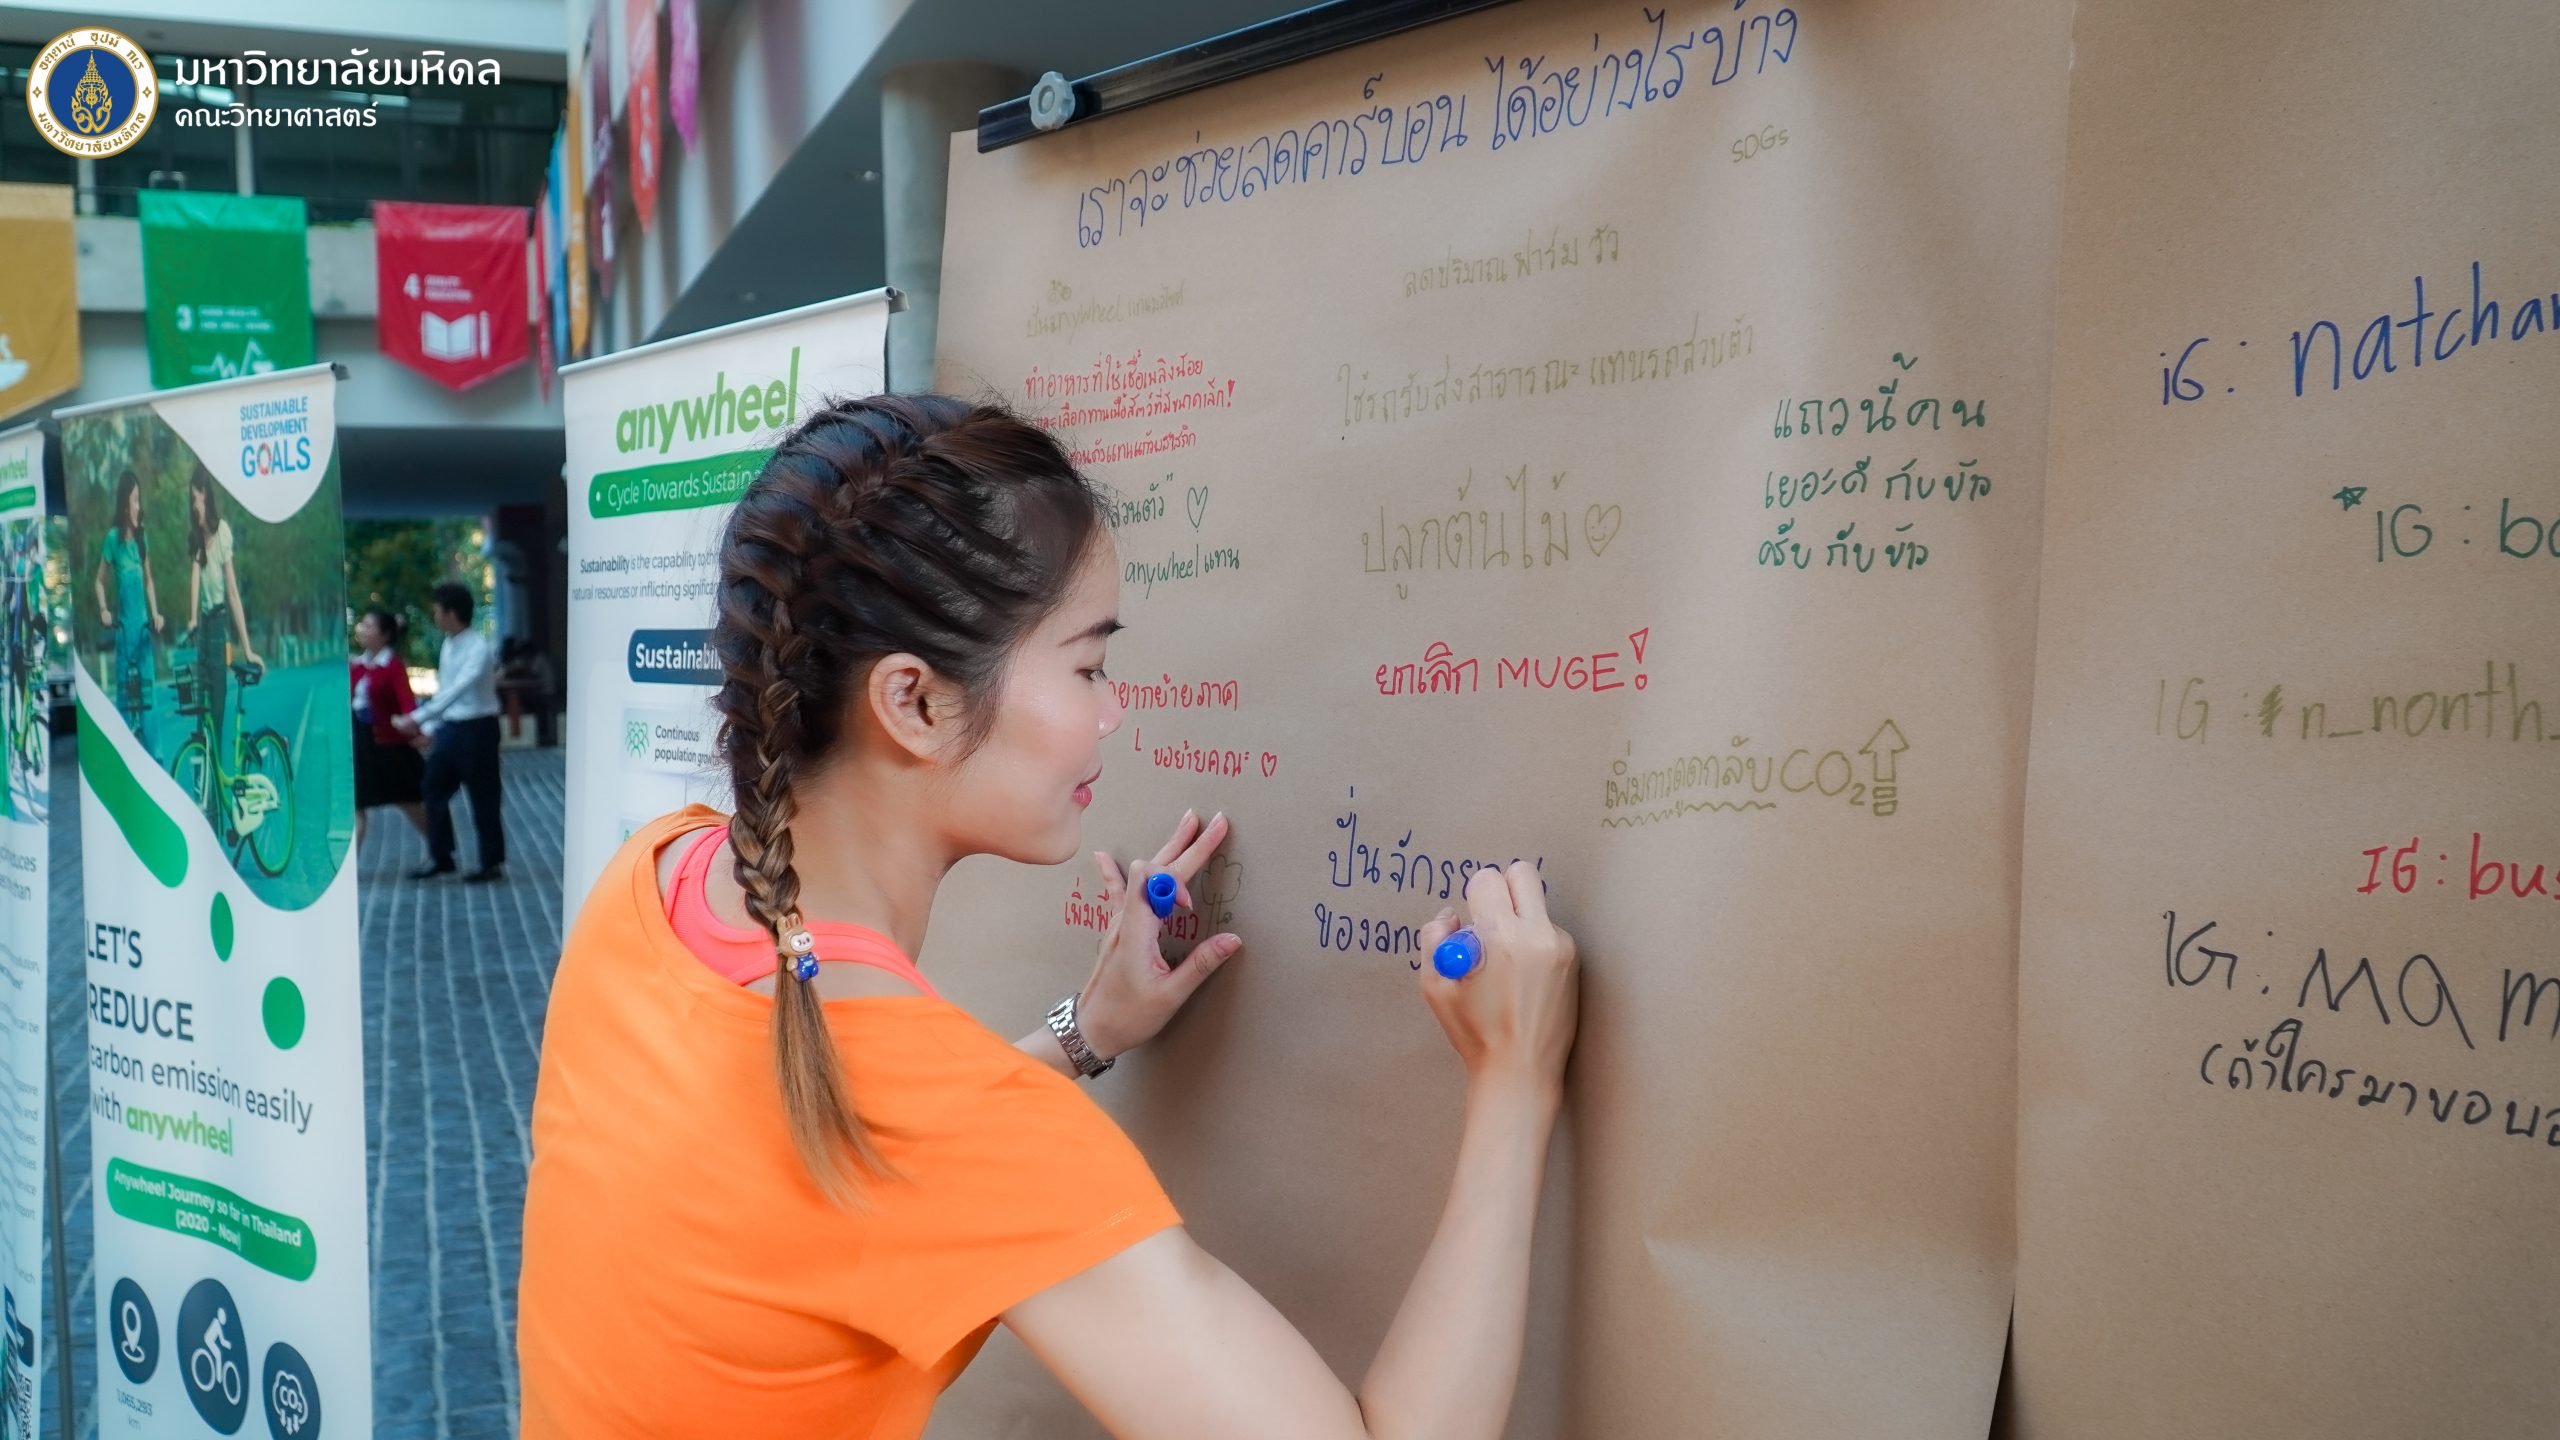 มหาวิทยาลัยมหิดล
คณะวิทยาศาสตร์
อตฺตานํ อุปมํ กเร
มหาวิทยาลัยมหิดล
3
4
SUSTAINABLE
DEVELOPMENT
GOALS
LET'S
REDUCE
carbon emission easily
with anywheel
Anywheel Journey so far in Thailand
(2020 - Now)
1,065,293
km
CO₂
anywheel
• Cycle Towards Sustaina
Sustainability is the capability to
natural resources or inflicting significa
Sustainabil
Continuous
population grow
เราจะช่วยลดคาร์บอน ได้อย่างไรบ้าง
SDGs
ปั่น anywheel แทน
ลดปริมาณ ฟาร์ม วัว
ทำอาหารที่ใช้เชื้อเพลิงน้อย
และเลือกทานเนื้อสัตว์ที่มีขนาดเล็ก!
ใช้รถรับส่งสาธารณะ แทนรถส่วนตัว
ส่วนตัว" ♡
anywheel แทน
ปลูกต้นไม้
แถวนี้คน
เยอะดี กับข้าว
ครับ กับข้าว
อยากย้ายภาค
ขอย้ายคณะ ♡
ยกเลิก MUGE!
เพิ่มการดูดกลับ CO₂
เพิ่มพื เขียว
ปั่นจักรยาน
ของ any
iG: natchar
IG: bo
IG: n_nonth_
IG: bus
IG: mam
(ถ้าใครมาขอบอ